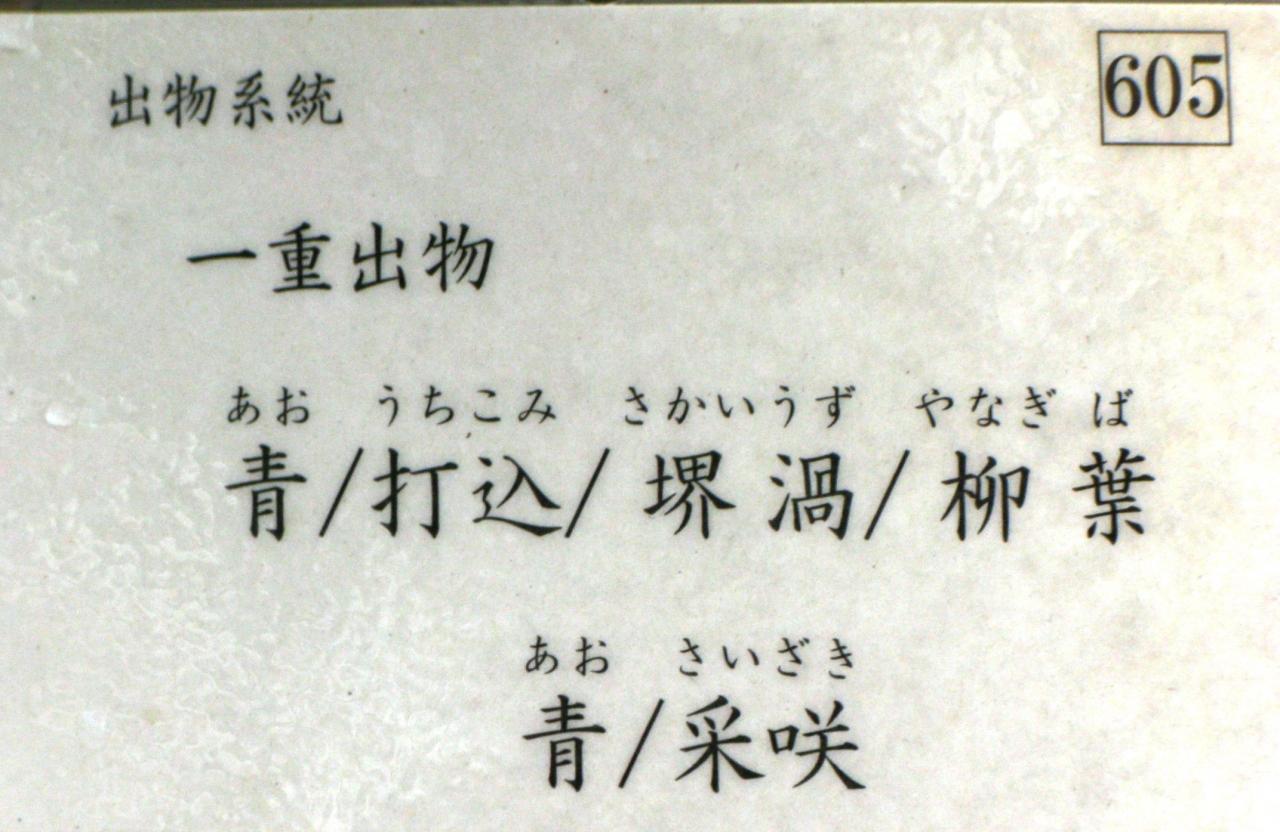 出物系統
605
一重出物
あお うちこみ さかいうず やなぎ ば
青/打込/堺渦/柳葉
あお さいざき
青/采咲